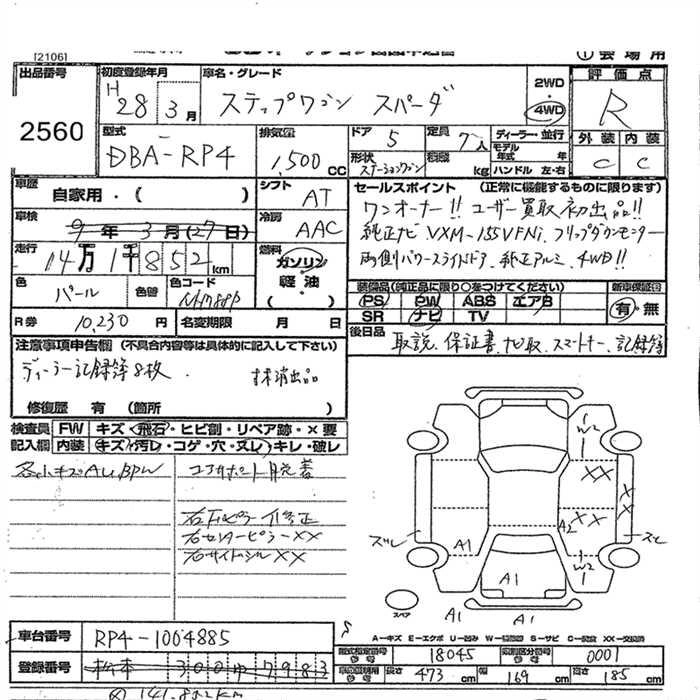 [2106]
① 会場用
出品番号
2560
初度登録年月
H28年3月
車名・グレード
ステップワゴン スパーダ
2WD
4WD
評価点
R
外装 内装
C C
型式
DBA-RP4
排気量
1,500 CC
ドア 5
定員 7人
ディーラー・並行
モデル年式 年
形状 ステーションワゴン
積載 kg
ハンドル 左・右
車歴
自家用・( )
シフト AT
車検
9年3月(27日)
冷房 AAC
走行
14万1千852km
燃料
ガソリン
軽油
( )
色 パール
色替
色コード NH788P
R券 10,230円
名変期限 月 日
セールスポイント (正常に機能するものに限ります)
ワンオーナー!! ユーザー買取初出品!!
純正ナビ VXM-155VFNi. フリップダウンモニター
両側パワースライドドア. 純正アルミ. 4WD!!
装備品(純正品に限り○をつけてください)
新車保証書
PS PW ABS エアB
SR ナビ TV
有・無
後日品
取説. 保証書. ナビ取. スマートキー. 記録簿
注意事項申告欄 (不具合内容等は具体的に記入して下さい)
ディーラー記録簿8枚.
抹消出品
修復歴 有 (箇所 )
検査員記入欄
FW キズ・飛石・ヒビ割・リペア跡・×要
内装 キズ・汚レ・コゲ・穴・ヌレ・キレ・破レ
各小キズAU.BPW
コアサポート脱着
右Fピラー 修正
右センターピラーXX
右サイドシルXX
W2
XX
X
X
A2 XX
ズレ
A1
W2
A1
スペア
A1
A1
A-キズ E-エクボ U-凹み W-補修跡 S-サビ C-腐食 XX-交換済
車台番号
RP4-1004885
型式指定番号 参考 18045
類別区分番号 参考 0001
登録番号
松本 300 ゆ 7983
長さ 473 cm
幅 169 cm
高さ 185 cm
141,852KM